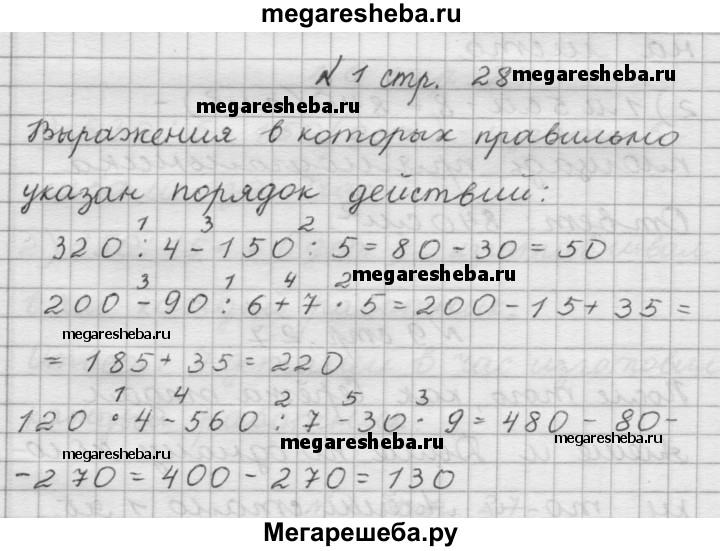 megaresheba.ru
№ 1 стр. 28
megaresheba.ru
megaresheba.ru
Выражения в которых правильно
указан порядок действий:
1 3 2
320 : 4 - 150 : 5 = 80 - 30 = 50
megaresheba.ru
3 1 4 2
200 - 90 : 6 + 7 · 5 = 200 - 15 + 35 =
megaresheba.ru
megaresheba.ru
= 185 + 35 = 220
1 4 2 5 3
120 · 4 - 560 : 7 - 30 · 9 = 480 - 80 -
megaresheba.ru
megaresheba.ru
megaresheba.ru
- 270 = 400 - 270 = 130
Мегарешеба.ру